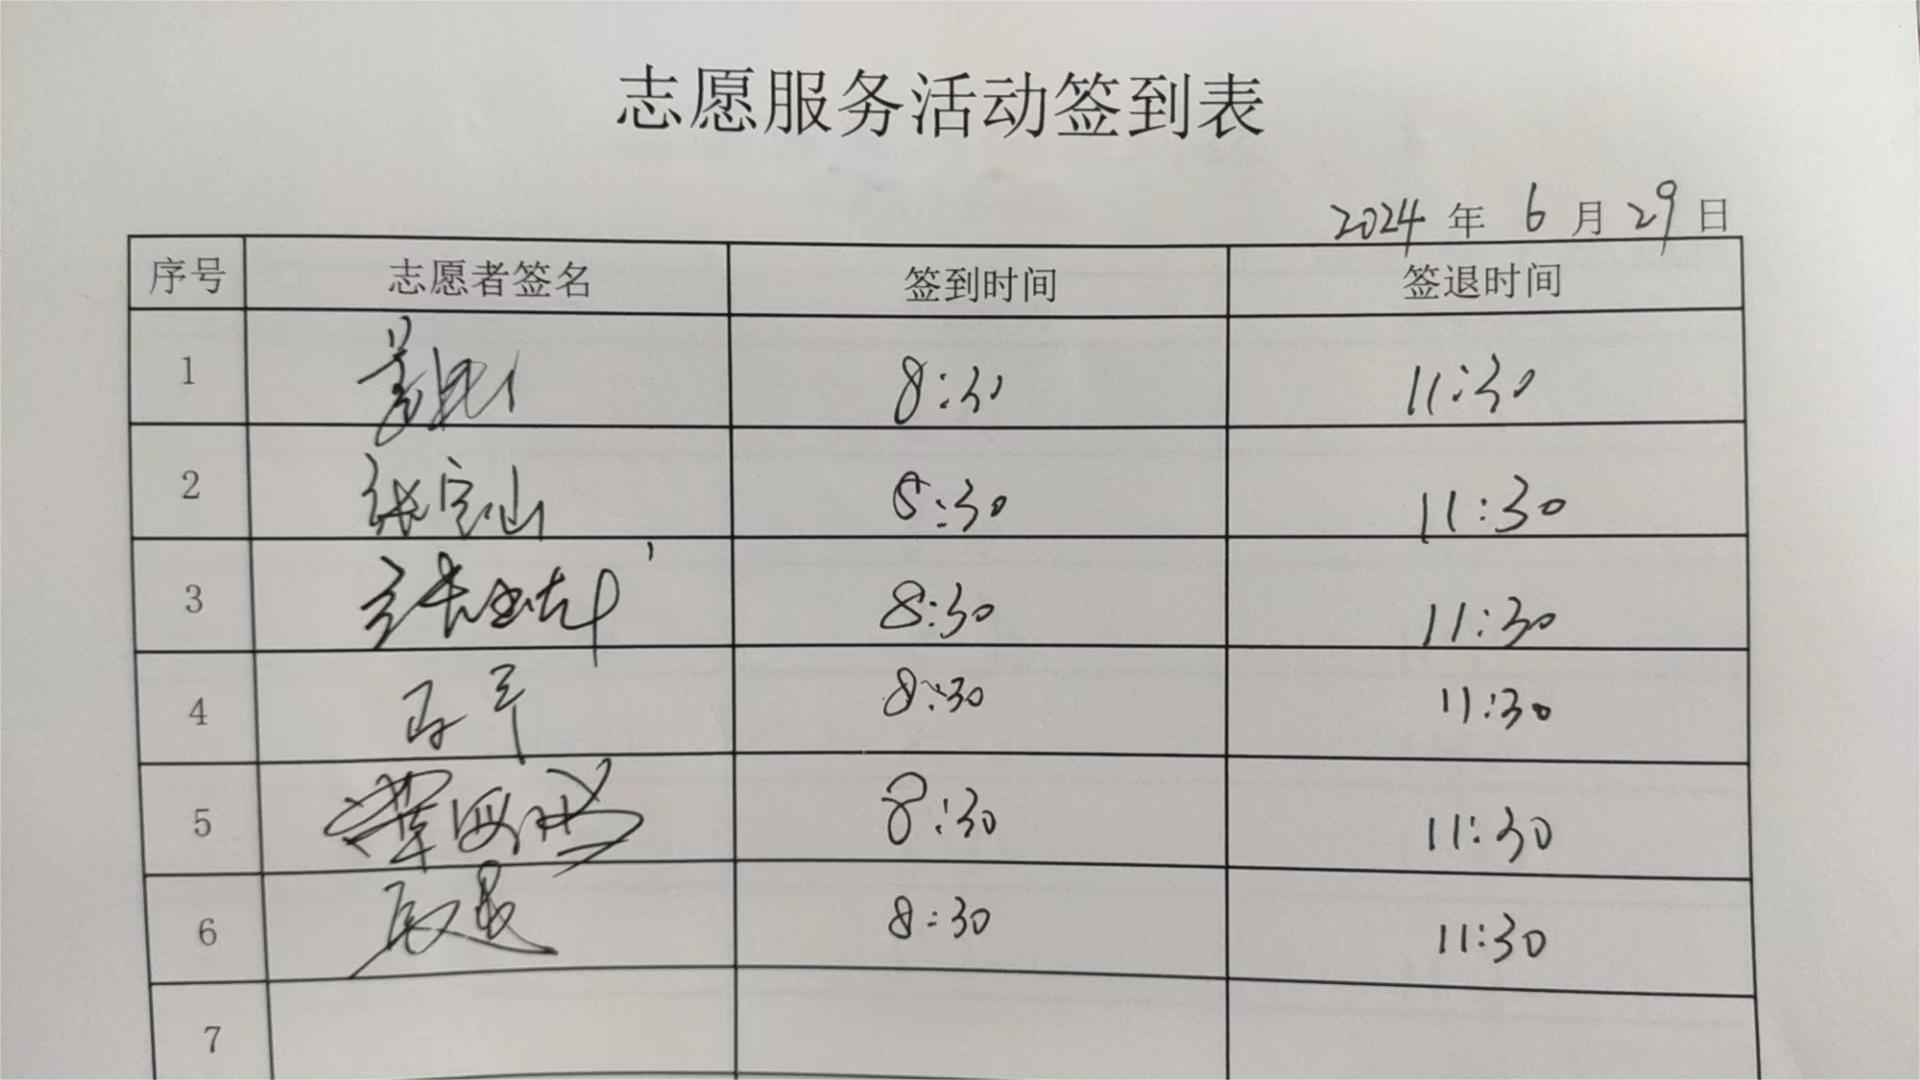 志愿服务活动签到表
2024 年 6 月 29 日
序号 志愿者签名 签到时间 签退时间
1 8:30 11:30
2 张宝山 8:30 11:30
3 8:30 11:30
4 8:30 11:30
5 8:30 11:30
6 8:30 11:30
7